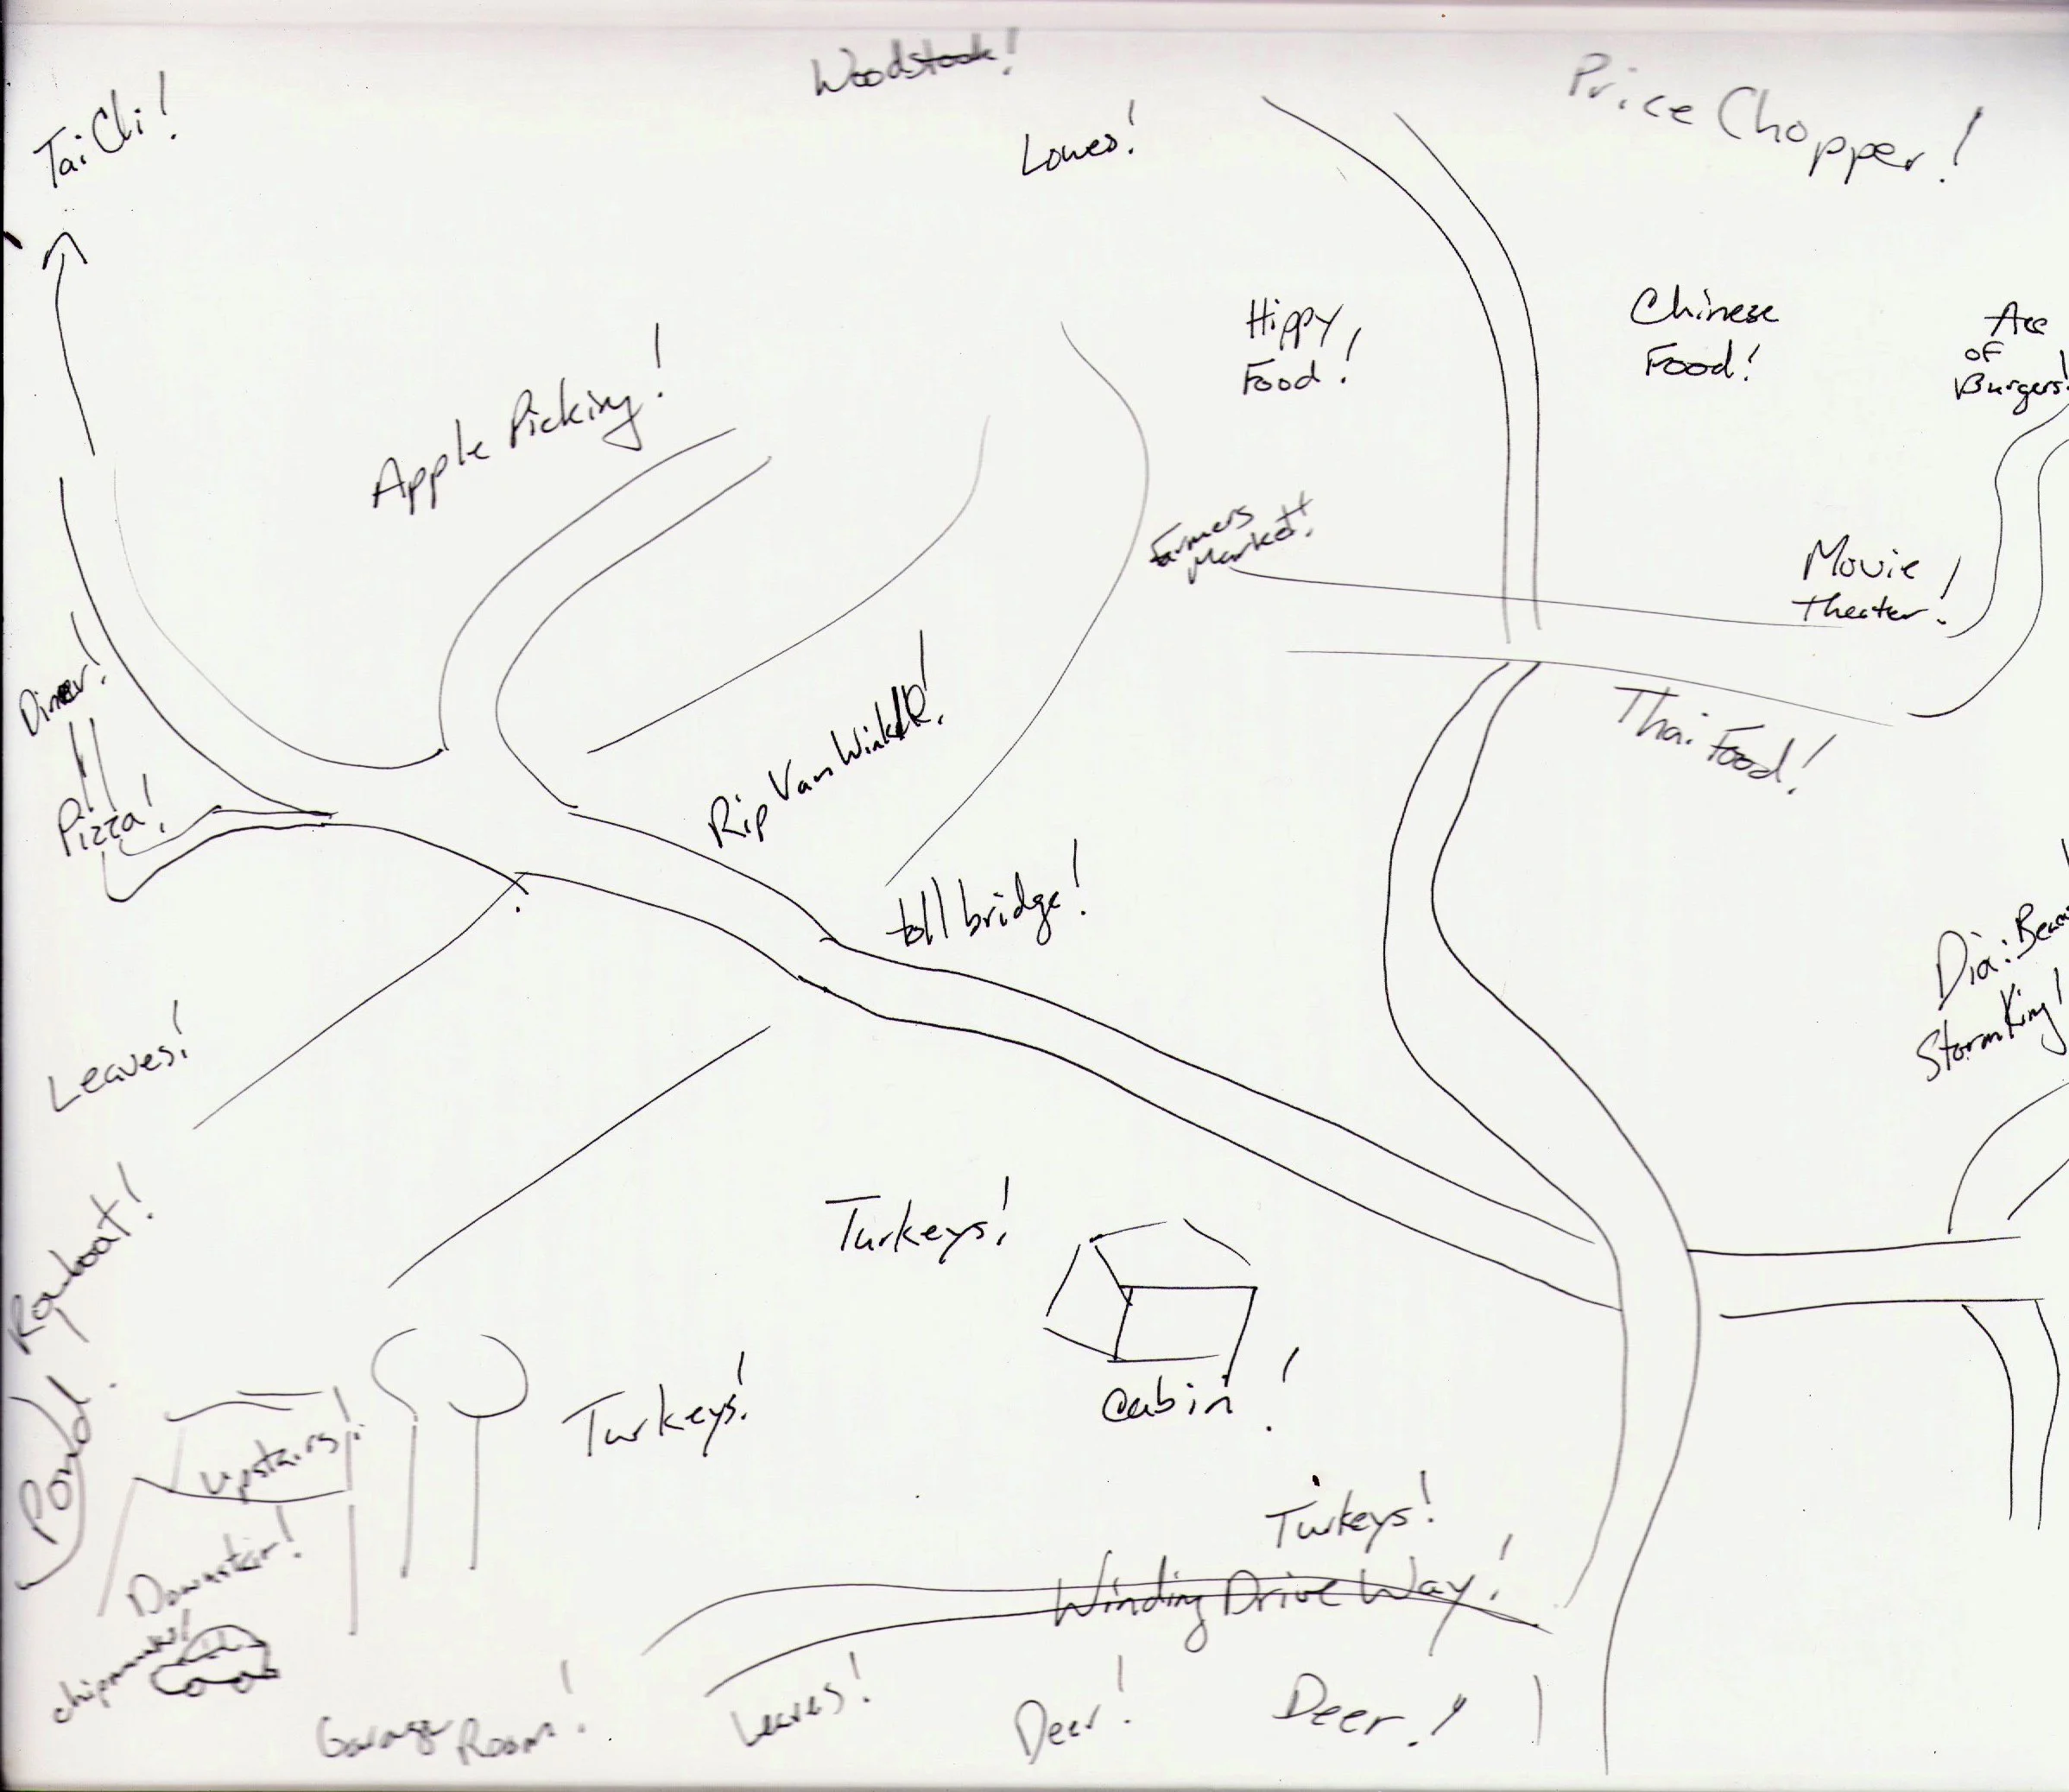 Woodstock!
Price Chopper!
Tai Chi!
Lowes!
Hippy
Food!
Chinese
Food!
Ace
of
Burgers!
Apple Picking!
Farmers
Market!
Movie
Theater!
Diner!
Rip Van Winkle!
Thai Food!
Pizza!
toll bridge!
Dia: Beac
Storm King!
Leaves!
Rowboat!
Turkeys!
Pond.
Turkeys!
Cabin!
Upstairs!
Turkeys!
Downstair!
Winding Drive Way!
chipmunks!
Garage Room!
Leaves!
Deer!
Deer!